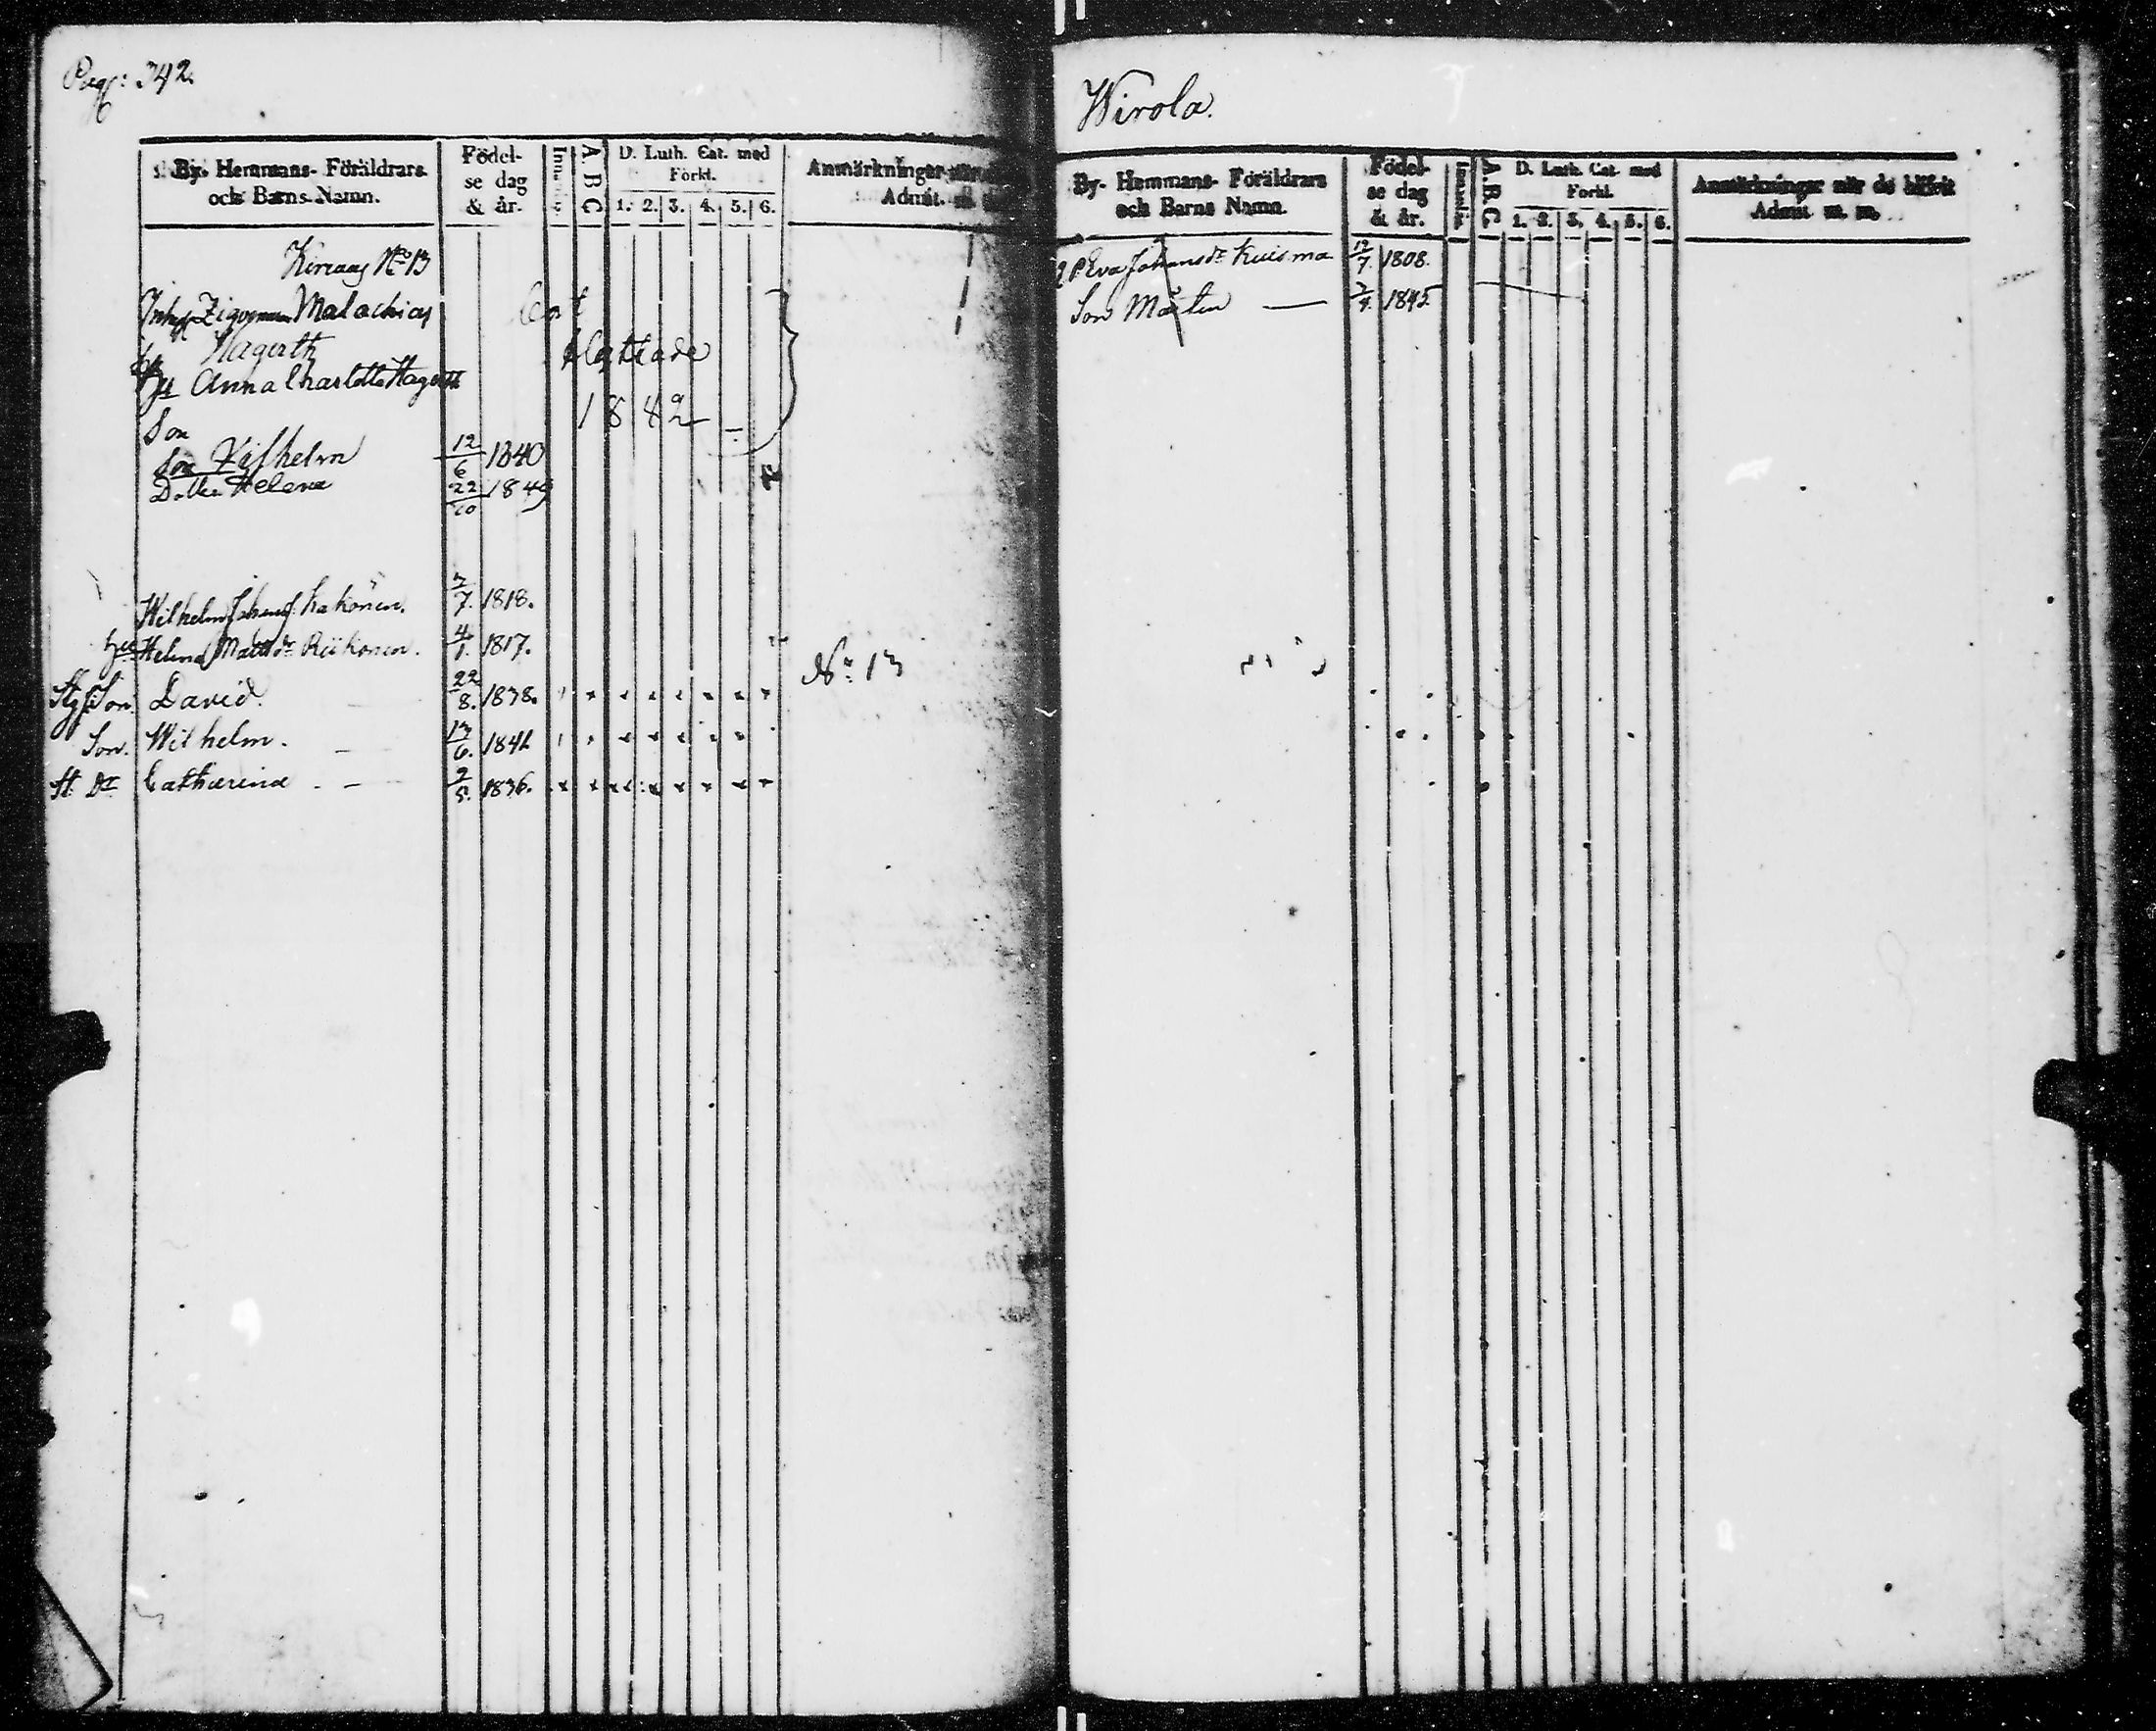 Pag: 342.
By- Hemmans- Föräldrars
och Barns Namn.
Födel-
se dag
& år.
A B C
D. Luth. Cat. med
Förkl.
1. 2. 3. 4. 5. 6.
Anmärkningar
Admit.
No 13
Malachias
Hagerth
Hu Anna Charlotta Hagerth
Son
Son Vilhelm 12/6 1840
Dotter Helena 22/10 1849
1842
Wilhelm Johanss. Kakönen. 7. 1818.
Hu Helena Matts dr Riikonen. 4/1. 1817.
No 13
Son David. 22/8. 1838.
Son. Wilhelm. 13/6. 1841
St. Dr Catharina 2/5. 1836.
Wirola.
By- Hemmans- Föräldrars
och Barns Namn.
Födel-
se dag
& år.
A.B.C.
D. Luth. Cat. med
Förkl.
1. 2. 3. 4. 5. 6.
Anmärkningar när de blifvit
Admit m. m.
Eva Johans dr Kuisma 12/7. 1808.
Son Mårten 1845